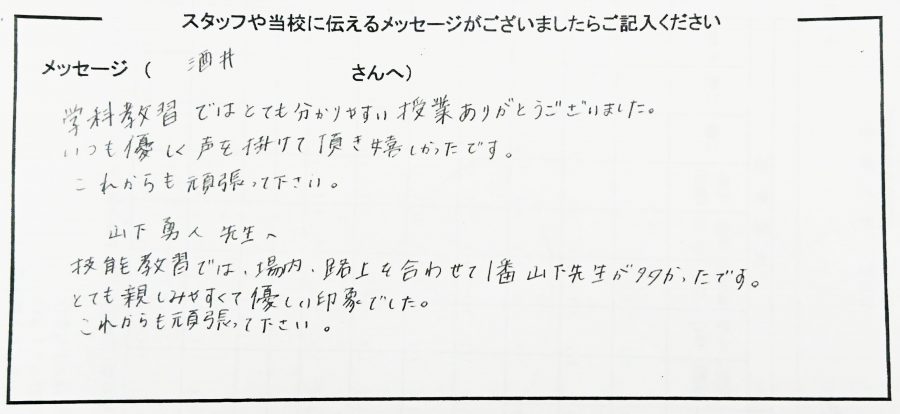 スタッフや当校に伝えるメッセージがございましたらご記入ください
メッセージ ( 酒井 さんへ)
学科教習ではとても分かりやすい授業ありがとうございました。
いつも優しく声を掛けて頂き嬉しかったです。
これからも頑張って下さい。
山下勇人先生へ
技能教習では、場内、路上を合わせて1番山下先生が多かったです。
とても親しみやすくて優しい印象でした。
これからも頑張って下さい。